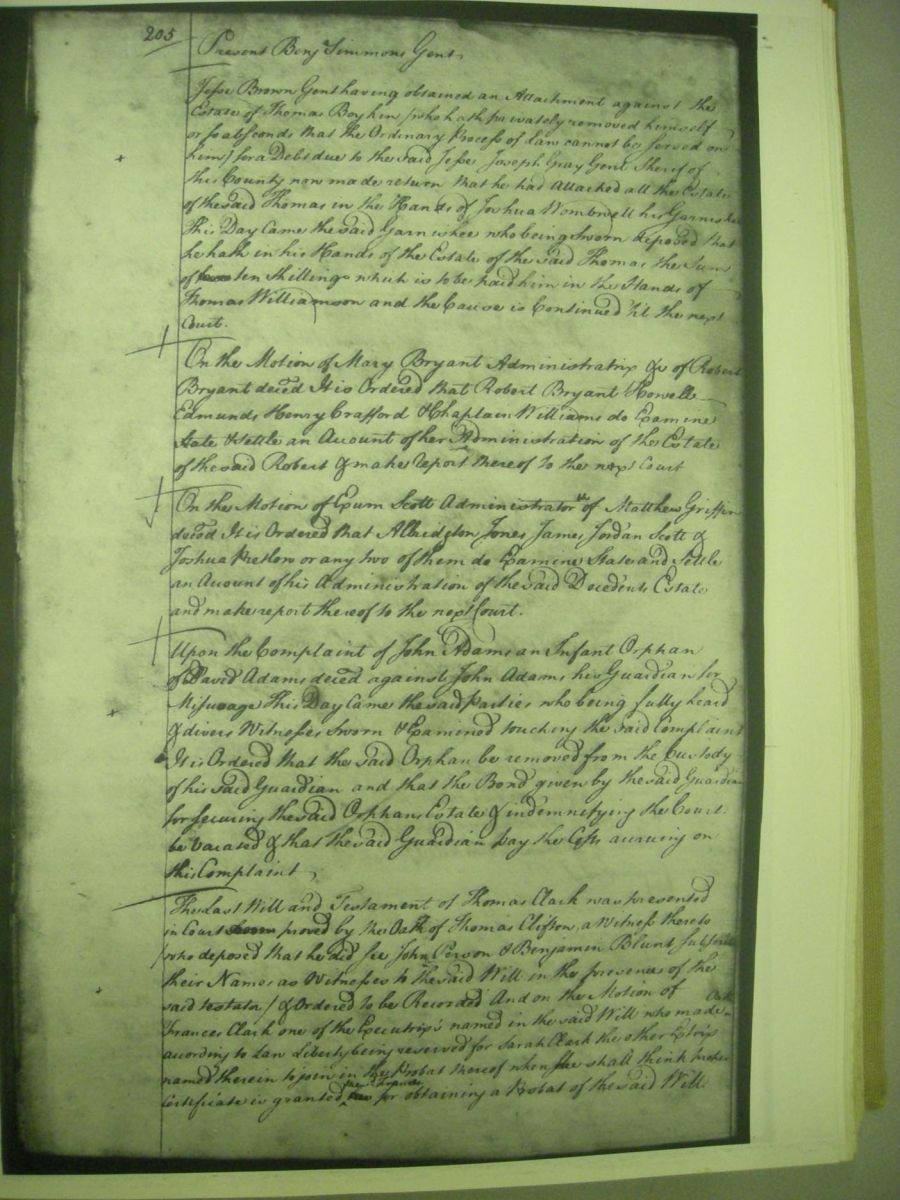 205
Present Benj Simmons Gent.
Jesse Brown Gent having obtained an Attachment against the
Estate of Thomas Boykin (who hath privately removed himself
or so absconds that the Ordinary Process of Law cannot be served on
him) for a Debt due to the said Jesse Joseph Gray Gent Sherif of
this County now made return that he had Attached all the Estate
of the said Thomas in the Hands of Joshua Wombwell his Garnishee
This Day Came the said Garnishee who being Sworn deposed that
he hath in his Hands of the Estate of the said Thomas the Sum
of ten Shillings which is to be paid him in the Hands of
Thomas Williamson and the Cause is Continued 'til the next
Court.
On the Motion of Mary Bryant Administratrix &c of Robert
Bryant deced It is Ordered that Robert Bryant Howell
Edmunds Henry Crafford & Chaplain Williams do Examine
State & settle an Account of her Administration of the Estate
of the said Robert & make report thereof to the next Court
On the Motion of Exum Scott Administrator of Matthew Griffin
deced It is Ordered that Albridgton Jones James Jordan Scott &
Joshua or any two of them do Examine State and Settle
an Account of his Administration of the said Decedents Estate
and make report thereof to the next Court.
Upon the Complaint of John Adams an Infant Orphan
of David Adams deced against John Adams his Guardian for
Misusage This Day Came the said Parties who being fully heard
& divers Witnesses Sworn & Examined touching the said Complaint
It is Ordered that the said Orphan be removed from the Custody
of his said Guardian and that the Bond given by the said Guardian
for securing the said Orphans Estate & indemnifying the Court
be Vacated & that the said Guardian pay the Costs accruing on
this Complaint
The Last Will and Testament of Thomas Clark was presented
in Court proved by the Oath of Thomas Clifton, a Witness thereto
(who deposed that he did see John Person & Benjamin Blunt subscribe
their Names as Witnesses to the said Will in the presence of the
said testator) & Ordered to be Recorded And on the Motion of
Frances Clark one of the Executrix's named in the said Will who made Oath
according to Law liberty being reserved for Sarah Clark the other Extrix
named therein to join in the Probat thereof when she shall think
Certificate is granted for obtaining a Probat of the said Will